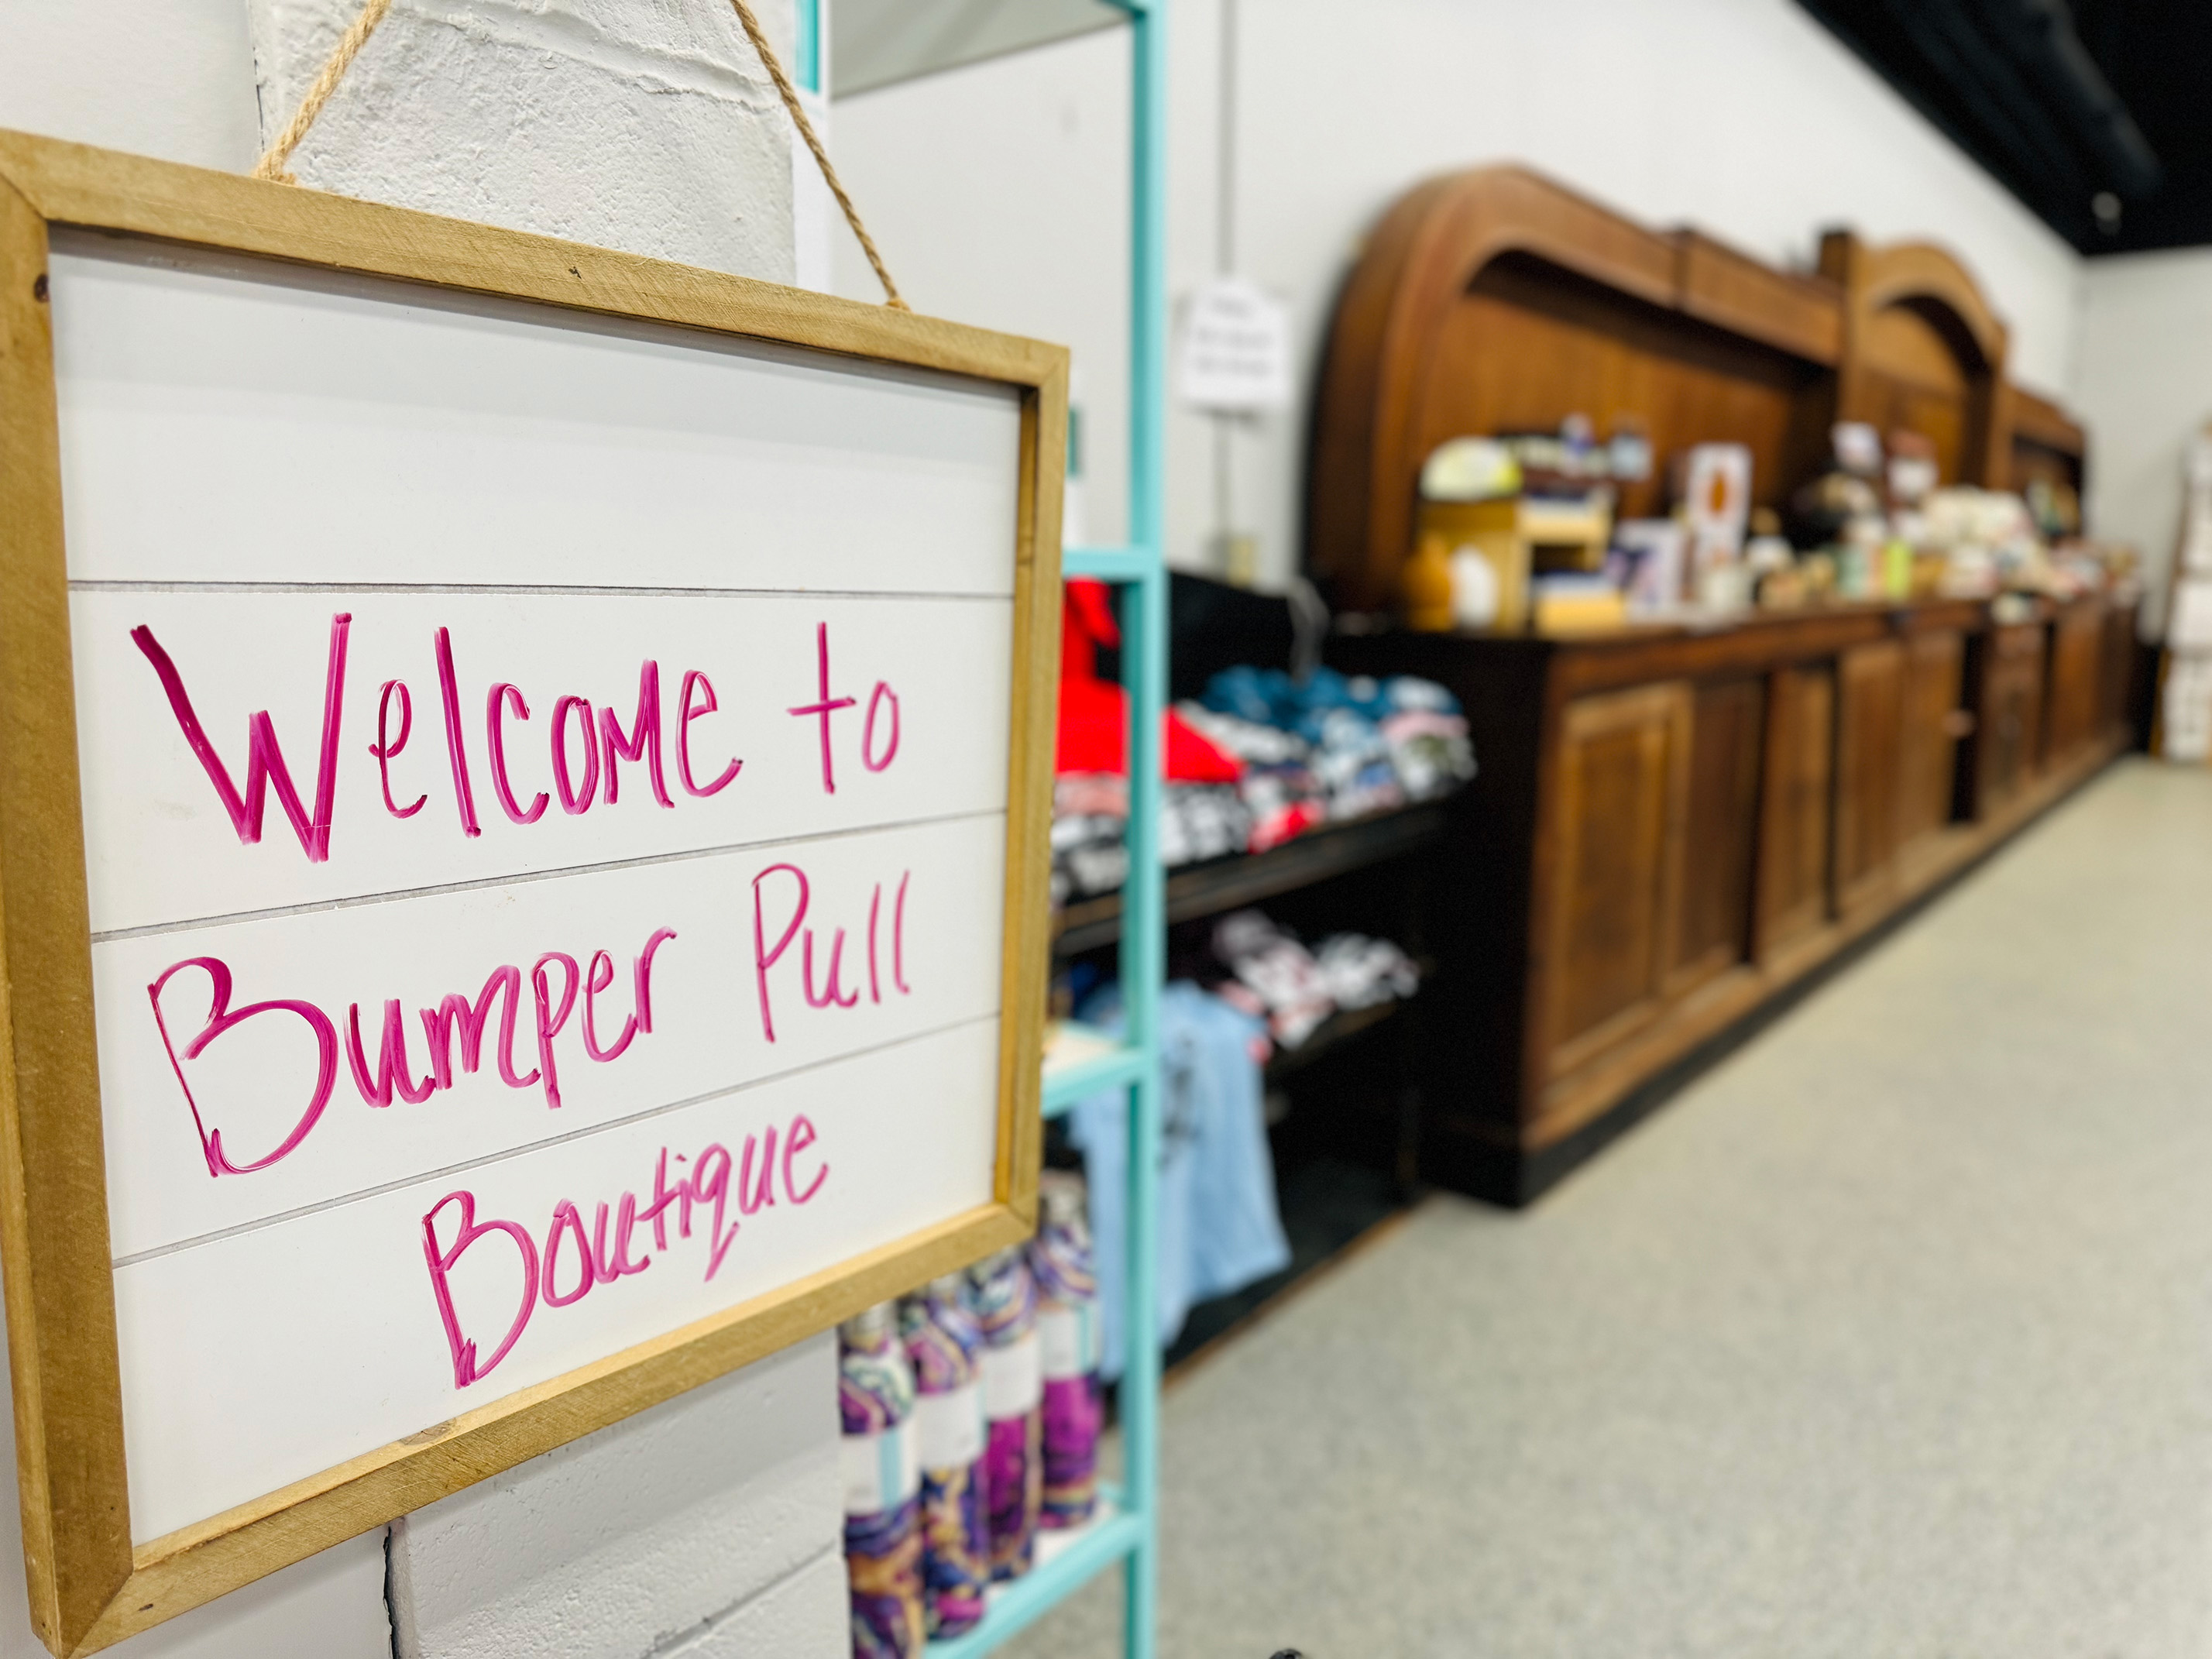 Welcome to
Bumper Pull
Boutique